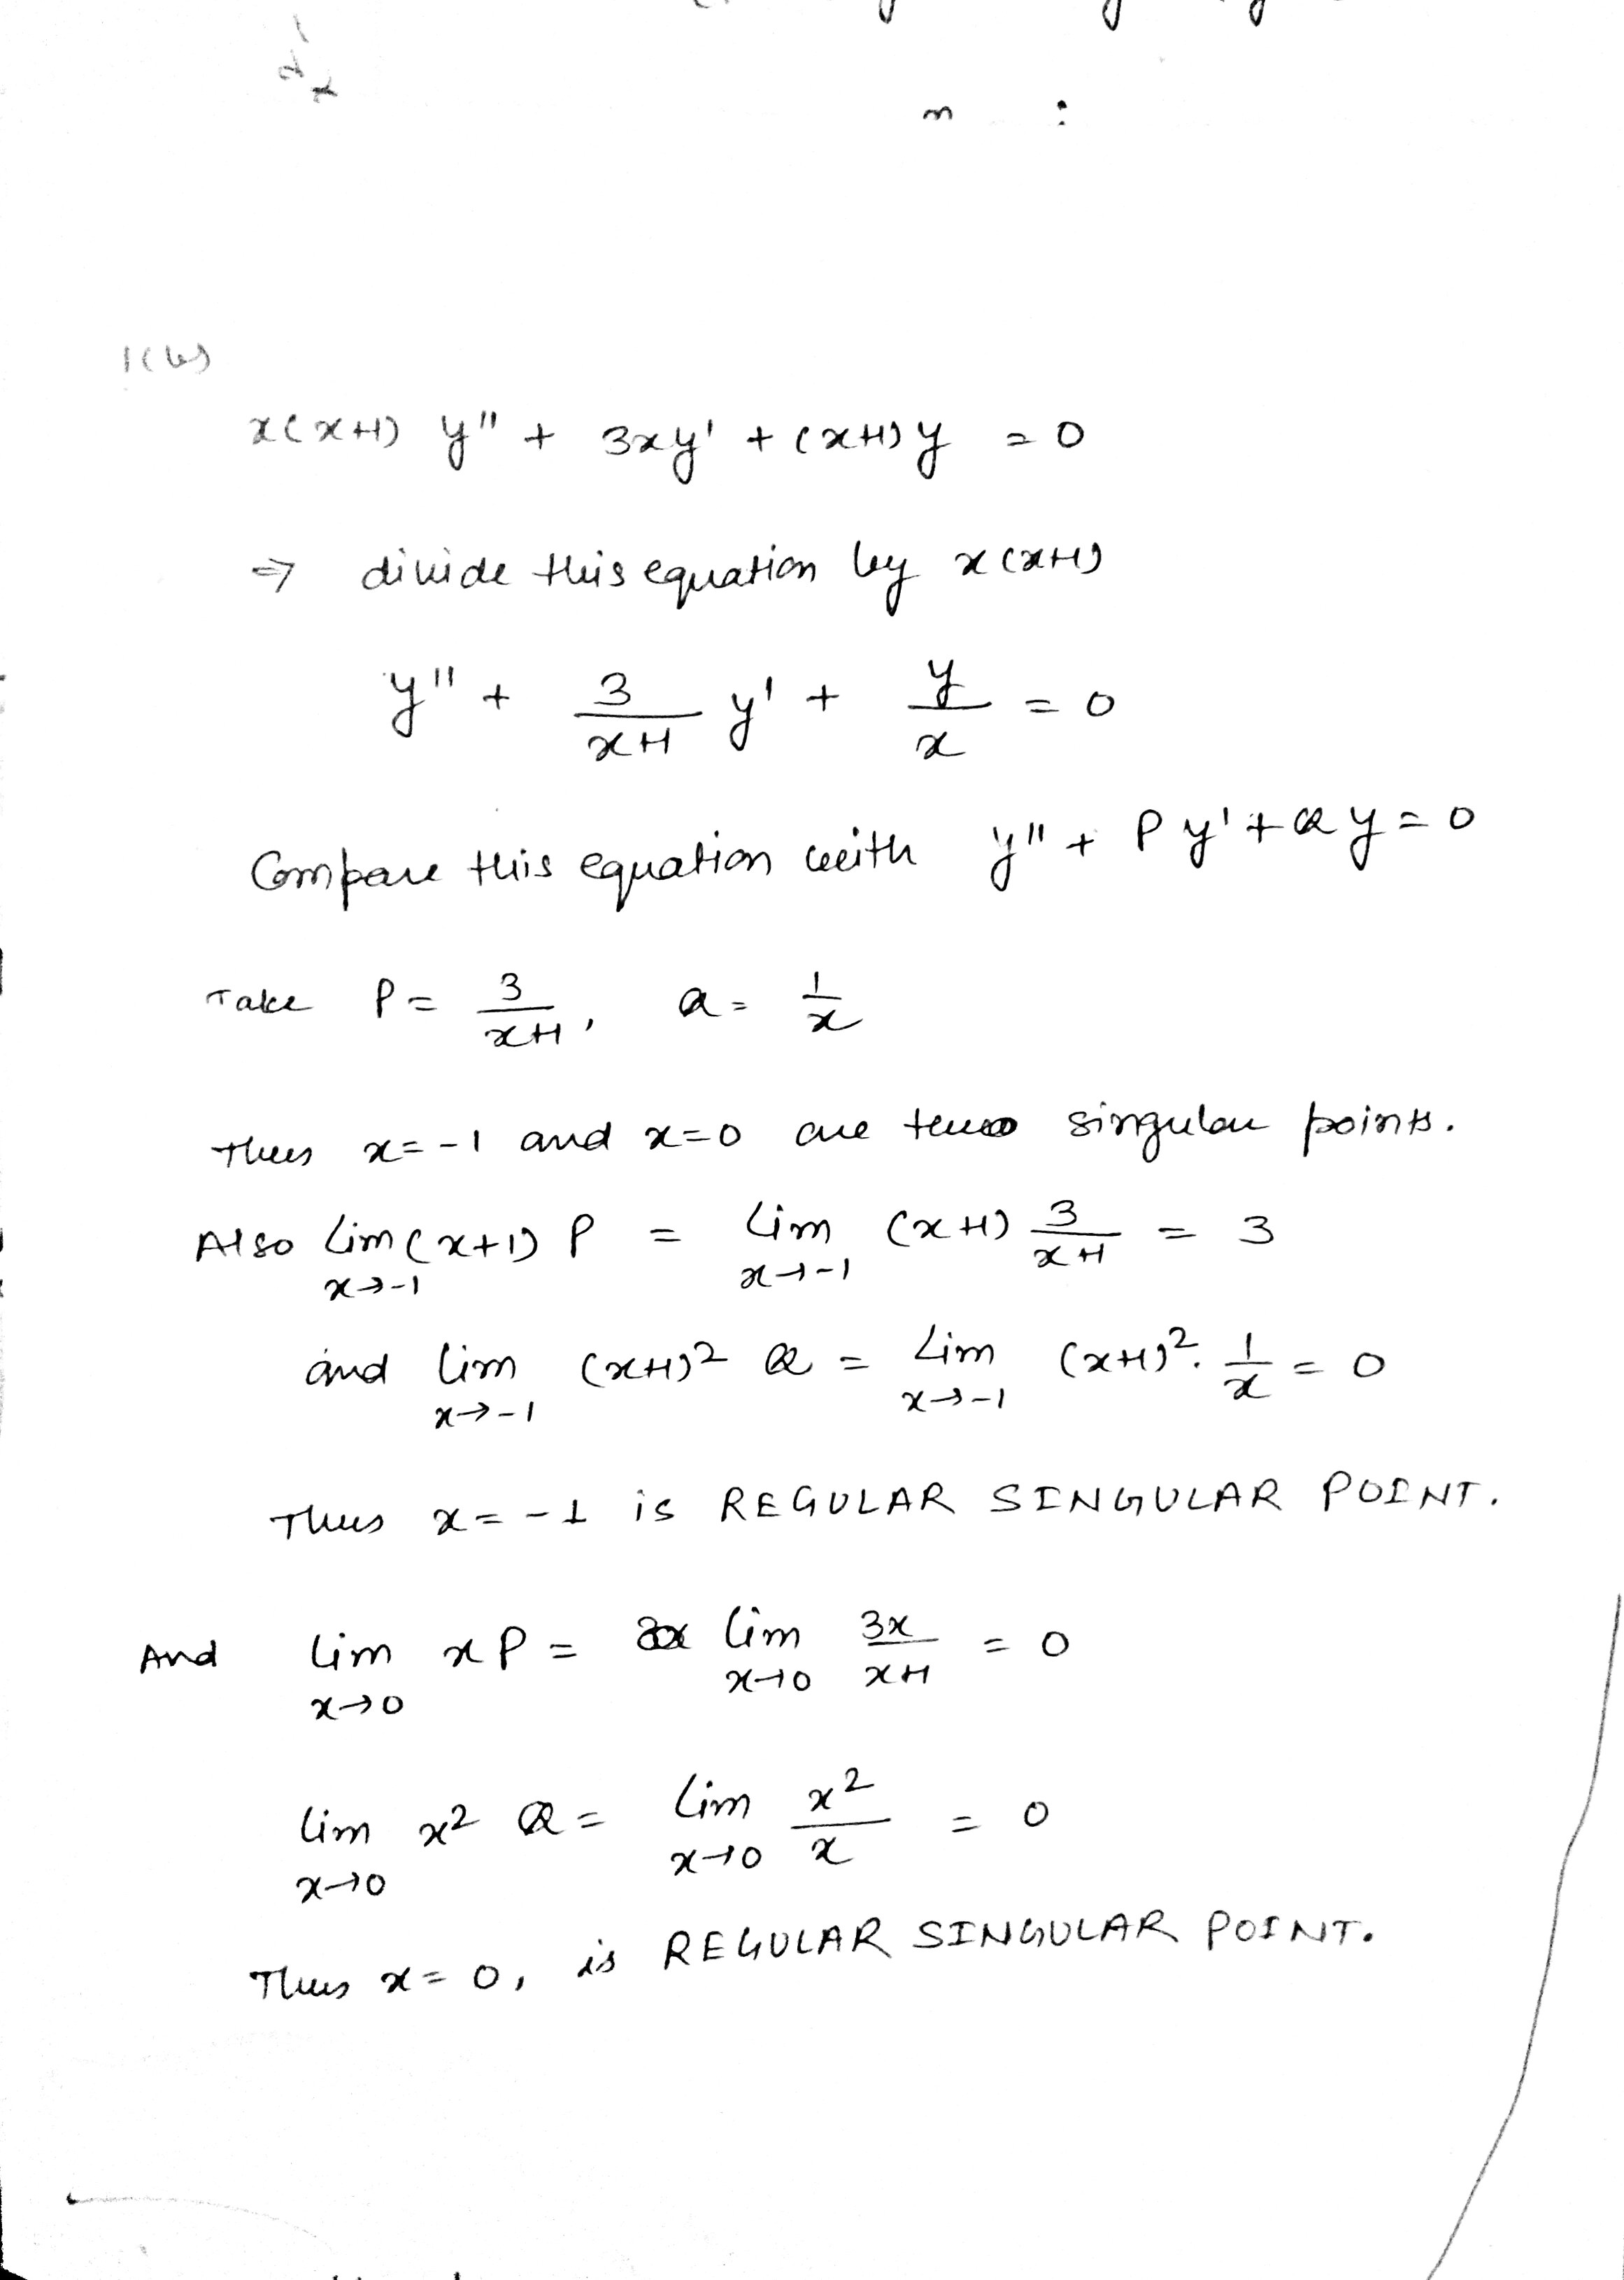 1(b)
x(x+1) y'' + 3xy' + (x+1)y = 0
⇒ divide this equation by x(x+1)
y'' + 3/(x+1) y' + y/x = 0
Compare this equation with y'' + P y' + Q y = 0
Take P = 3/(x+1), Q = 1/x
Thus x = -1 and x = 0 are two singular points.
Also Lim x→-1 (x+1) P = Lim x→-1 (x+1) 3/(x+1) = 3
and lim x→-1 (x+1)² Q = Lim x→-1 (x+1)². 1/x = 0
Thus x = -1 is REGULAR SINGULAR POINT.
And lim x→0 x P = lim x→0 3x/(x+1) = 0
lim x→0 x² Q = Lim x→0 x²/x = 0
Thus x = 0, is REGULAR SINGULAR POINT.